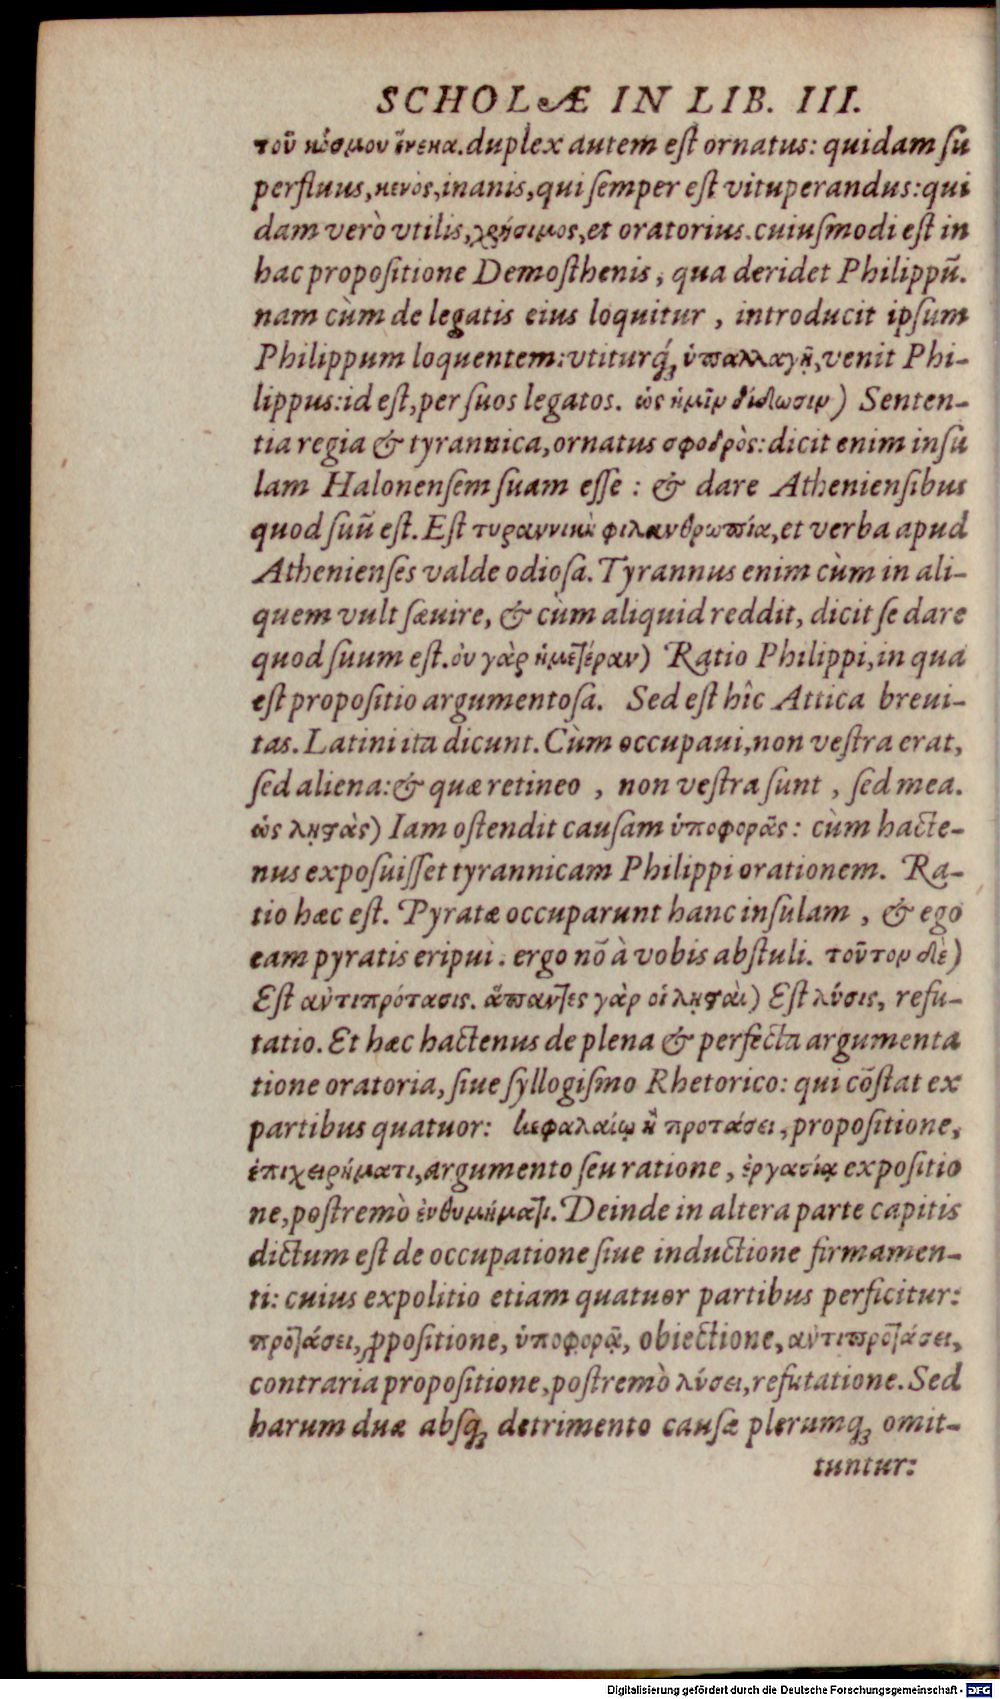 SCHOLÆ IN LIB. III.
τοῦ κόσμου ἕνεκα. duplex autem eſt ornatus: quidam ſu
perfluus, κενός, inanis, qui ſemper eſt vituperandus: qui
dam verò vtilis, χρήσιμος, et oratorius. cuiuſmodi eſt in
hac propoſitione Demoſthenis, qua deridet Philippũ.
nam cùm de legatis eius loquitur, introducit ipſum
Philippum loquentem: vtiturq́; ὑπαλλαγῇ, venit Phi-
lippus: id eſt, per ſuos legatos. ὡς ἡμῖν δίδωσιν) Senten-
tia regia & tyrannica, ornatus σφοδρὸς: dicit enim inſu
lam Halonenſem ſuam eſſe: & dare Athenienſibus
quod ſuũ eſt. Eſt τυραννικὴ φιλανθρωπία, et verba apud
Athenienſes valde odioſa. Tyrannus enim cùm in ali-
quem vult ſæuire, & cùm aliquid reddit, dicit ſe dare
quod ſuum eſt. οὐ γὰρ ἡμετέραν) Ratio Philippi, in qua
eſt propoſitio argumentoſa. Sed eſt hîc Attica breui-
tas. Latini ita dicunt. Cùm occupaui, non veſtra erat,
ſed aliena: & quæ retineo, non veſtra ſunt, ſed mea.
ὡς λῃϛὰς) Iam oſtendit cauſam ὑποφορᾶς: cùm hacte-
nus expoſuiſſet tyrannicam Philippi orationem. Ra-
tio hæc eſt. Pyratæ occuparunt hanc inſulam, & ego
eam pyratis eripui. ergo nõ à vobis abſtuli. τοῦτον δὲ)
Eſt αὐτιπρότασις. ἅπαντες γὰρ οἱ λῃϛὰι) Eſt λύσις, refu-
tatio. Et hæc hactenus de plena & perfecta argumenta
tione oratoria, ſiue ſyllogiſmo Rhetorico: qui cõſtat ex
partibus quatuor: κεφαλαίῳ ἢ προτάσει, propoſitione,
ἐπιχειρήματι, argumento ſeu ratione, ἐργασίᾳ expoſitio
ne, poſtremò ἐνθυμήματι. Deinde in altera parte capitis
dictum eſt de occupatione ſiue inductione firmamen-
ti: cuius expolitio etiam quatuor partibus perficitur:
προτάσει, ꝓpoſitione, ὑποφορᾷ, obiectione, αὐτιπροτάσει,
contraria propoſitione, poſtremò λύσει, refutatione. Sed
harum duæ abſq; detrimento cauſæ plerumq; omit-
tuntur:
Digitalisierung gefördert durch die Deutsche Forschungsgemeinschaft - DFG